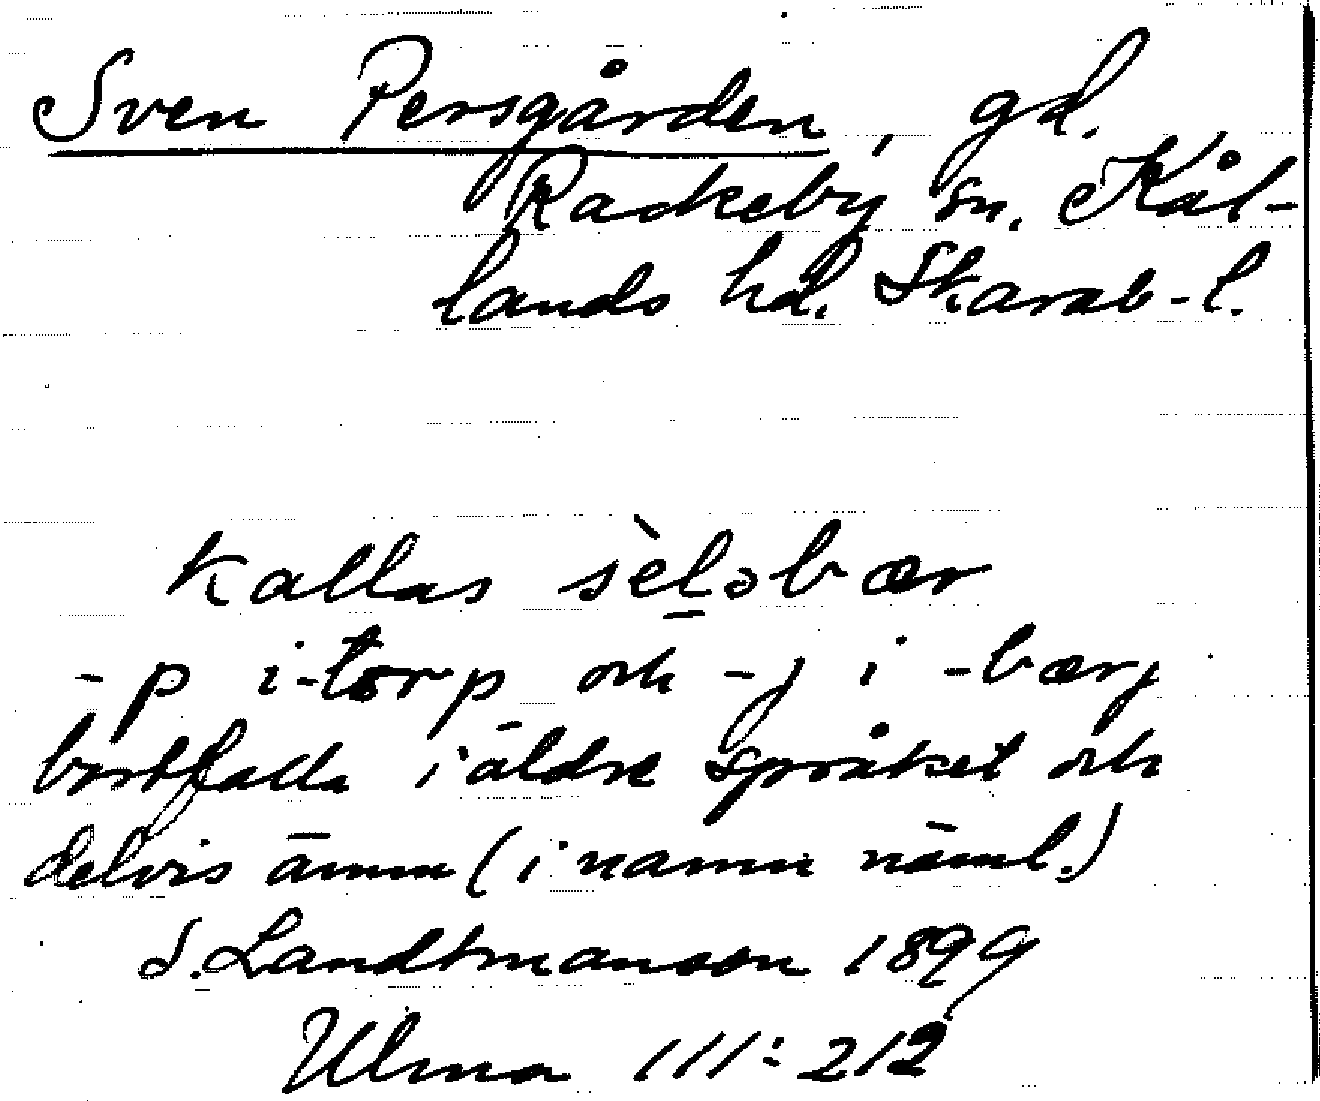 Sven Persgården, gd.
Rackeby sn. Kål-
lands hd. Skarab-l.
kallas sèl̠əbær
-p i -torp och -j i -bærj
bortfalla i äldre språket och
delvis ännu (i namn näml.)
S. Landtmanson 1899
Ulma 111:212